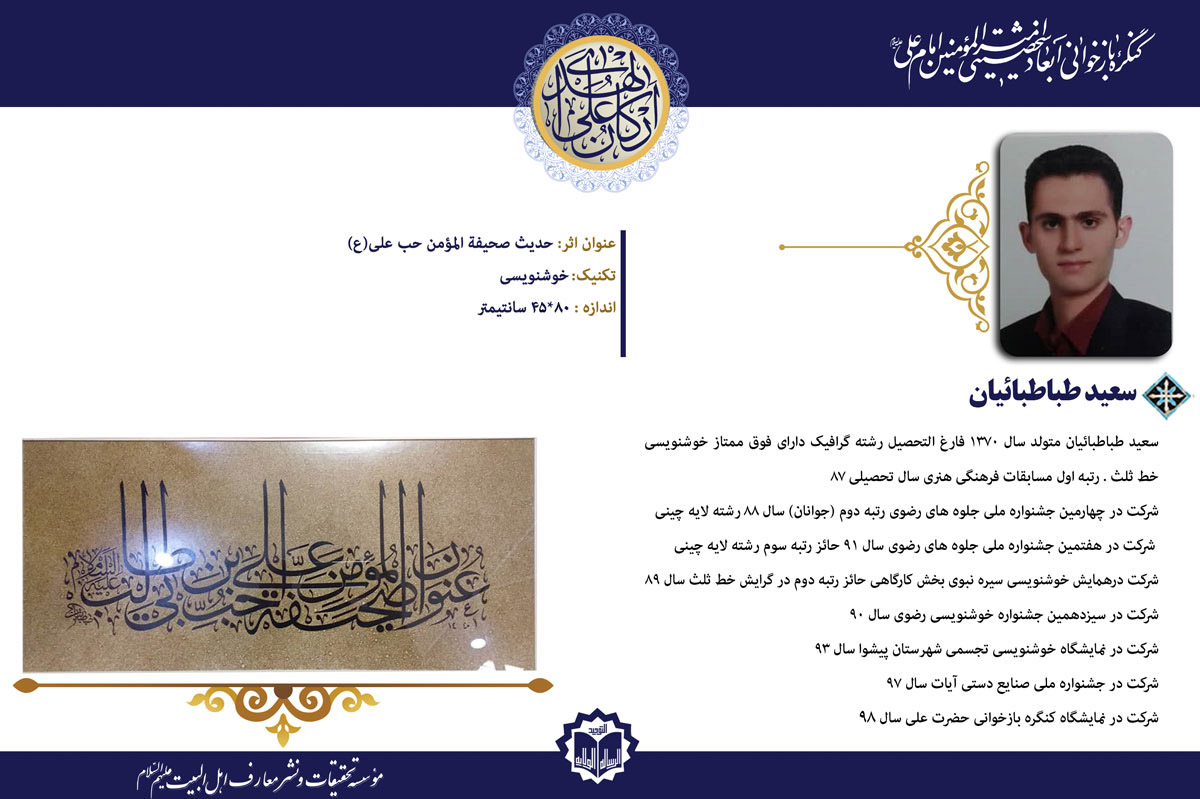 کنگره بازخوانی ابعاد شخصیتی امیرالمؤمنین امام علی علیه‌السلام
ارکان الهدی علی
عنوان اثر: حدیث صحیفة المؤمن حب علی(ع)
تکنیک: خوشنویسی
اندازه : ۸۰*۴۵ سانتیمتر
سعید طباطبائیان
سعید طباطبائیان متولد سال ۱۳۷۰ فارغ التحصیل رشته گرافیک دارای فوق ممتاز خوشنویسی
خط ثلث . رتبه اول مسابقات فرهنگی هنری سال تحصیلی ۸۷
شرکت در چهارمین جشنواره ملی جلوه های رضوی رتبه دوم (جوانان) سال ۸۸ رشته لایه چینی
شرکت در هفتمین جشنواره ملی جلوه های رضوی سال ۹۱ حائز رتبه سوم رشته لایه چینی
شرکت درهمایش خوشنویسی سیره نبوی بخش کارگاهی حائز رتبه دوم در گرایش خط ثلث سال ۸۹
شرکت در سیزدهمین جشنواره خوشنویسی رضوی سال ۹۰
شرکت در نمایشگاه خوشنویسی تجسمی شهرستان پیشوا سال ۹۳
شرکت در جشنواره ملی صنایع دستی آیات سال ۹۷
شرکت در نمایشگاه کنگره بازخوانی حضرت علی سال ۹۸
عنوان صحیفة المؤمن حب علی بن ابی طالب علیه السلام
التوحید
الرساله الولایه
مؤسسه تحقیقات و نشر معارف اهل البیت علیهم السلام